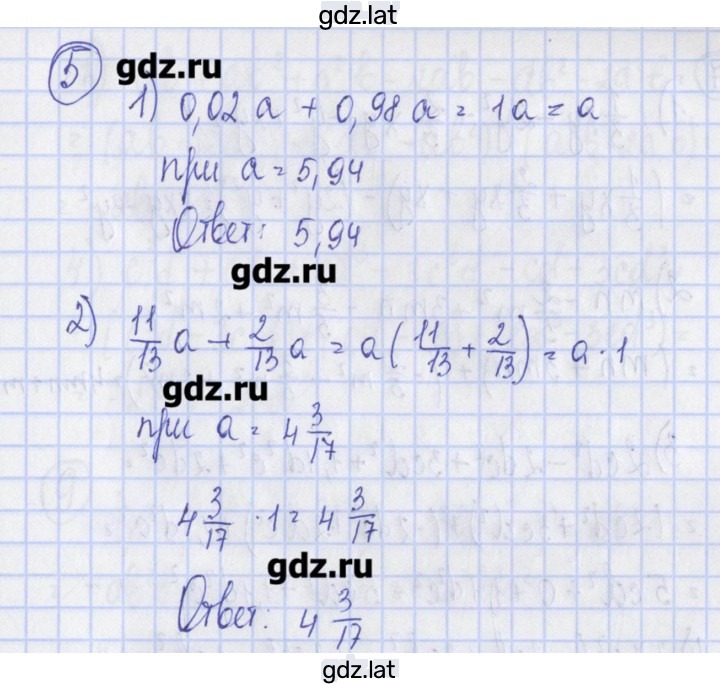 gdz.lat
5 gdz.ru
1) 0,02 a + 0,98 a = 1a = a
при a = 5,94
Ответ: 5,94
gdz.ru
2) 11/13 a + 2/13 a = a (11/13 + 2/13) = a · 1
gdz.ru
при a = 4 3/17
4 3/17 · 1 = 4 3/17
gdz.ru
Ответ: 4 3/17
gdz.lat